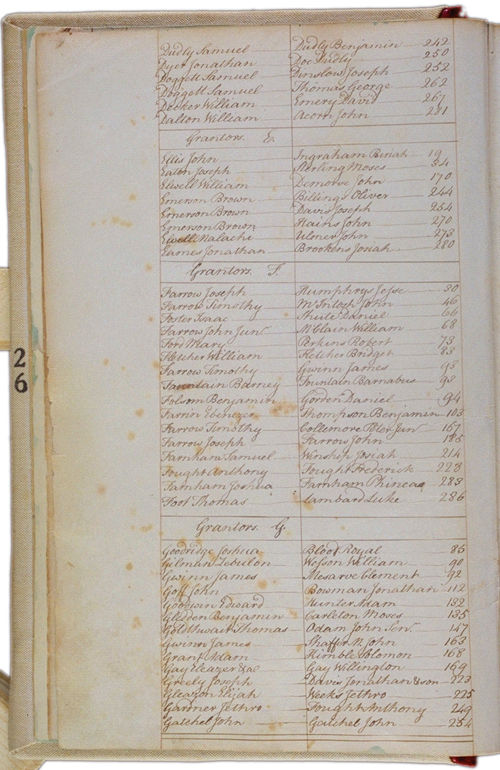 Dudly Samuel Dudly Benjamin 242
Dyer Jonathan Doe Dudly 250
Doggett Samuel Dinslow Joseph 252
Doggett Samuel Thomas George 262
Decker William Emery David 267
Dalton William Acorn John 281
Grantors. E.
Ellis John Ingraham Beriah 19
Eaton Joseph Sterling Moses
Elwell William Demorse John 170
Emerson Brown Billings Oliver 244
Emerson Brown Davis Joseph 254
Emerson Brown Hains John 270
Ewell Malachi Ulmer John 273
Eames Jonathan Brookens Josiah 280
Grantors. F.
Farrow Joseph Humphrys Jesse 20
Farrow Timothy McIntosh John 46
Foster Isaac Shute Daniel 66
Farrow John Junr McClain William 68
Ford Mary Perkins Robert 73
Fletcher William Fletcher Bridget 83
Farrow Timothy Gwinn James 95
Fountain Barney Fountain Barnabus
Folsom Benjamin Gorden Daniel 94
Farrin Ebenezer Thompson Benjamin 103
Farrow Timothy Collemore Junr 167
Farrow Joseph Farrow John 185
Farnham Samuel Winship Josiah 214
Fought Anthony Fought Frederick 228
Farnham Joshua Farnham Phineas 283
Foot Thomas Lambard Luke 286
Grantors. G.
Goodridge Joshua Blood Royal 85
Gilman Zebulon Wesson William 90
Gwinn James Mesarve Clement 92
Goff John Bowman Jonathan 112
Goodwin Edward Hunter Adam 132
Glidden Benjamin Carleton Moses 135
Goldthwait Thomas Adam John Senr 147
Gwinn James Shaffer M. John 163
Grant Adam Kimble Solomon 168
Gay Eleazer &al Gay Wellington 169
Greely Joseph Davis Jonathan & son 223
Gleazon Elijah Weeks Jethro 225
Gardner Jethro Fought Anthony 249
Gatchel John Gatchel John 254
26